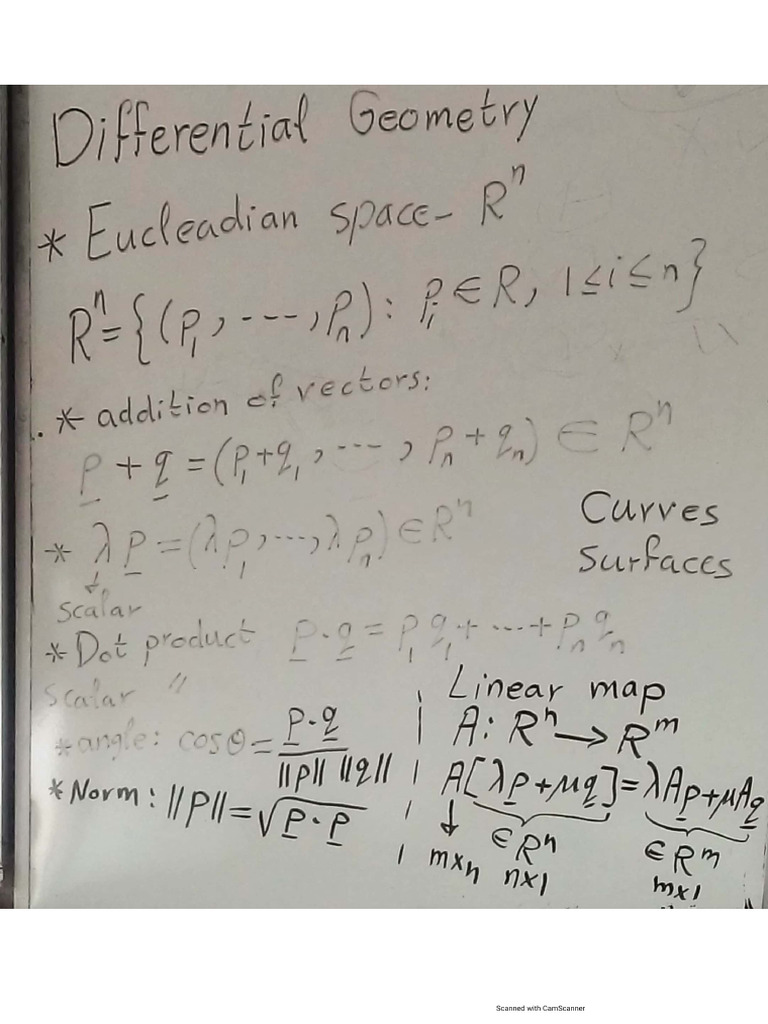 Differential Geometry
* Eucleadian space - Rⁿ
Rⁿ = {(p₁, ---, pₙ) : pᵢ ∈ R, 1 ≤ i ≤ n}
* addition of vectors:
p + q = (p₁+q₁, ---, pₙ+qₙ) ∈ Rⁿ
* λp = (λp₁, ..., λpₙ) ∈ Rⁿ
↓
scalar
Curves
Surfaces
* Dot product p · q = p₁q₁ + ... + pₙqₙ
Scalar "
* angle: cosθ = p · q / ||p|| ||q||
* Norm: ||p|| = √(p · p)
Linear map
A : Rⁿ → Rᵐ
A[λp + μq] = λAp + μAq
↓ ∈ Rⁿ ∈ Rᵐ
m×n n×1 m×1
Scanned with CamScanner